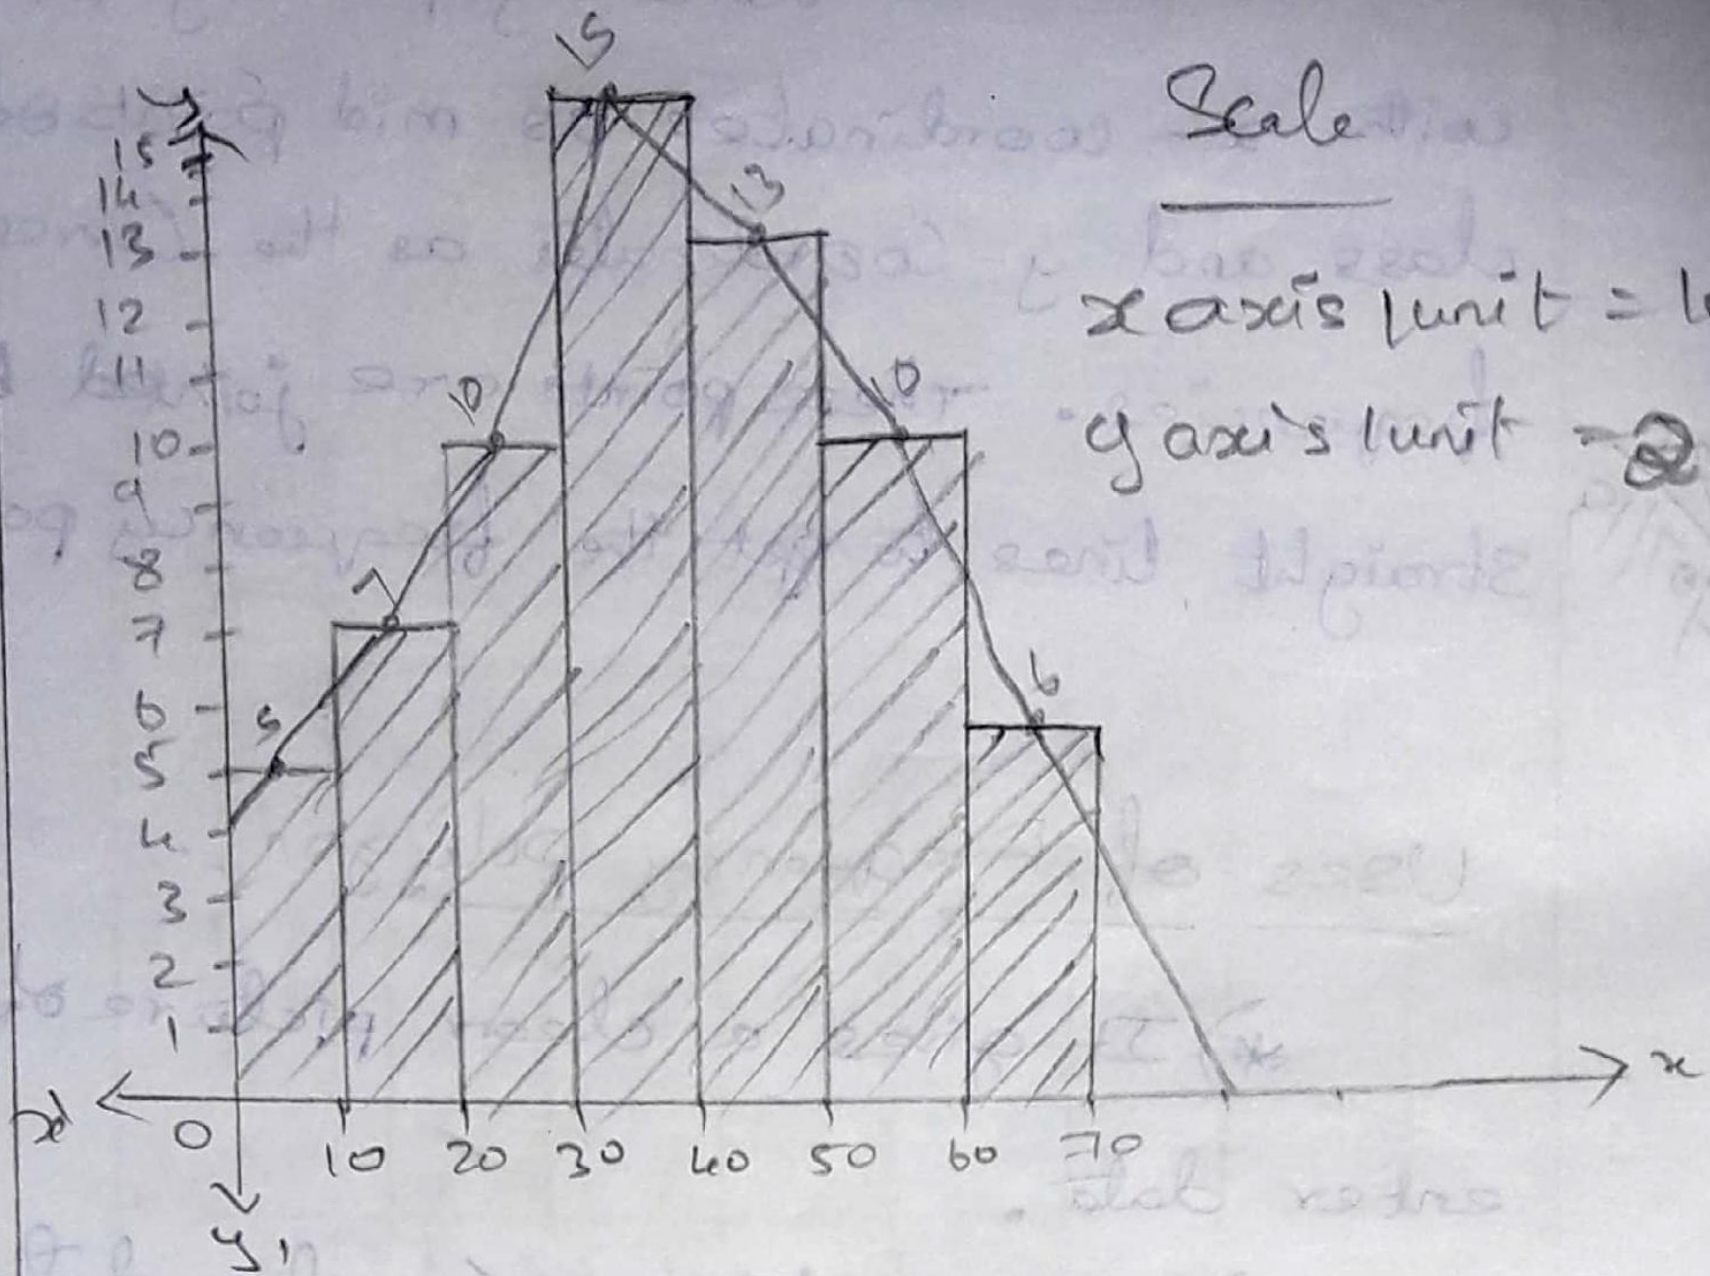 Scale
x axis 1 unit =
y axis 1 unit = 2
y
15
14
13
12
11
10
9
8
7
6
5
4
3
2
1
15
13
10
10
7
5
6
x
x'
0 10 20 30 40 50 60 70
y1